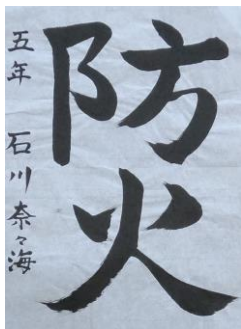 防火
五年 石川奈々海